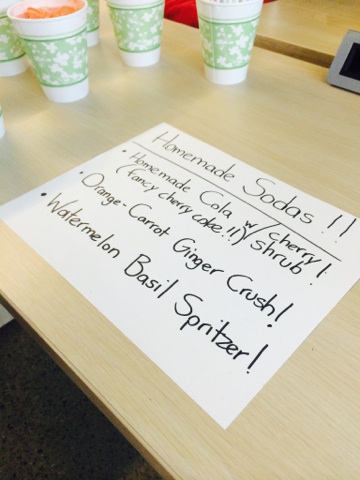 Homemade Sodas !!
• Homemade Cola w/ cherry shrub!
(fancy cherry coke!!)
• Orange-Carrot Ginger Crush!
• Watermelon Basil Spritzer!